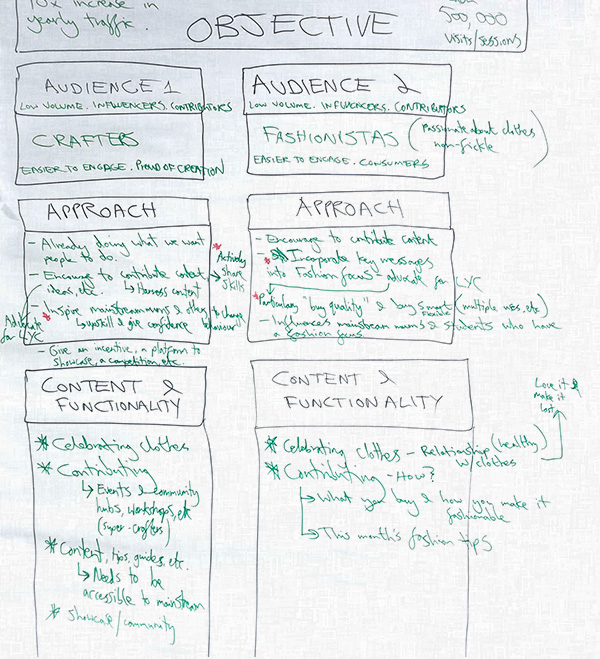 10x increase in
yearly traffic.
OBJECTIVE
500,000
visits/sessions
AUDIENCE 1
LOW VOLUME. INFLUENCERS. CONTRIBUTORS
CRAFTERS
EASIER TO ENGAGE. PROUD OF CREATION
AUDIENCE 2
LOW VOLUME. INFLUENCERS. CONTRIBUTORS
FASHIONISTAS (passionate about clothes
non-fickle)
EASIER TO ENGAGE. CONSUMERS
APPROACH
- Already doing what we want
people to do.
- Encourage to contribute content
ideas, etc. ↳ Harness content
* Actively
→ share
skills
Advocate
for LYC
* - Inspire mainstream mums & others to change
↳ upskill & give confidence behaviour
- Give an incentive, a platform to
showcase, a competition, etc.
APPROACH
- Encourage to contribute content
* Incorporate key messages
into Fashion focus - advocate for LYC
* Particulary "buy quality" & buy smart (multiple uses, etc)
- Influences mainstream mums & students who have
a fashion focus
CONTENT &
FUNCTIONALITY
* Celebrating clothes
* Contributing
↳ Events & community
hubs, workshops, etc
(super-crafters)
* Content, tips, guides, etc.
↳ Needs to be
accessible to mainstream
* Showcase/community
CONTENT &
FUNCTIONALITY
Love it &
make it
last
* Celebrating clothes - Relationship (healthy)
w/clothes
* Contributing - How?
→ What you buy & how you make it
fashionable
→ This month's fashion tips